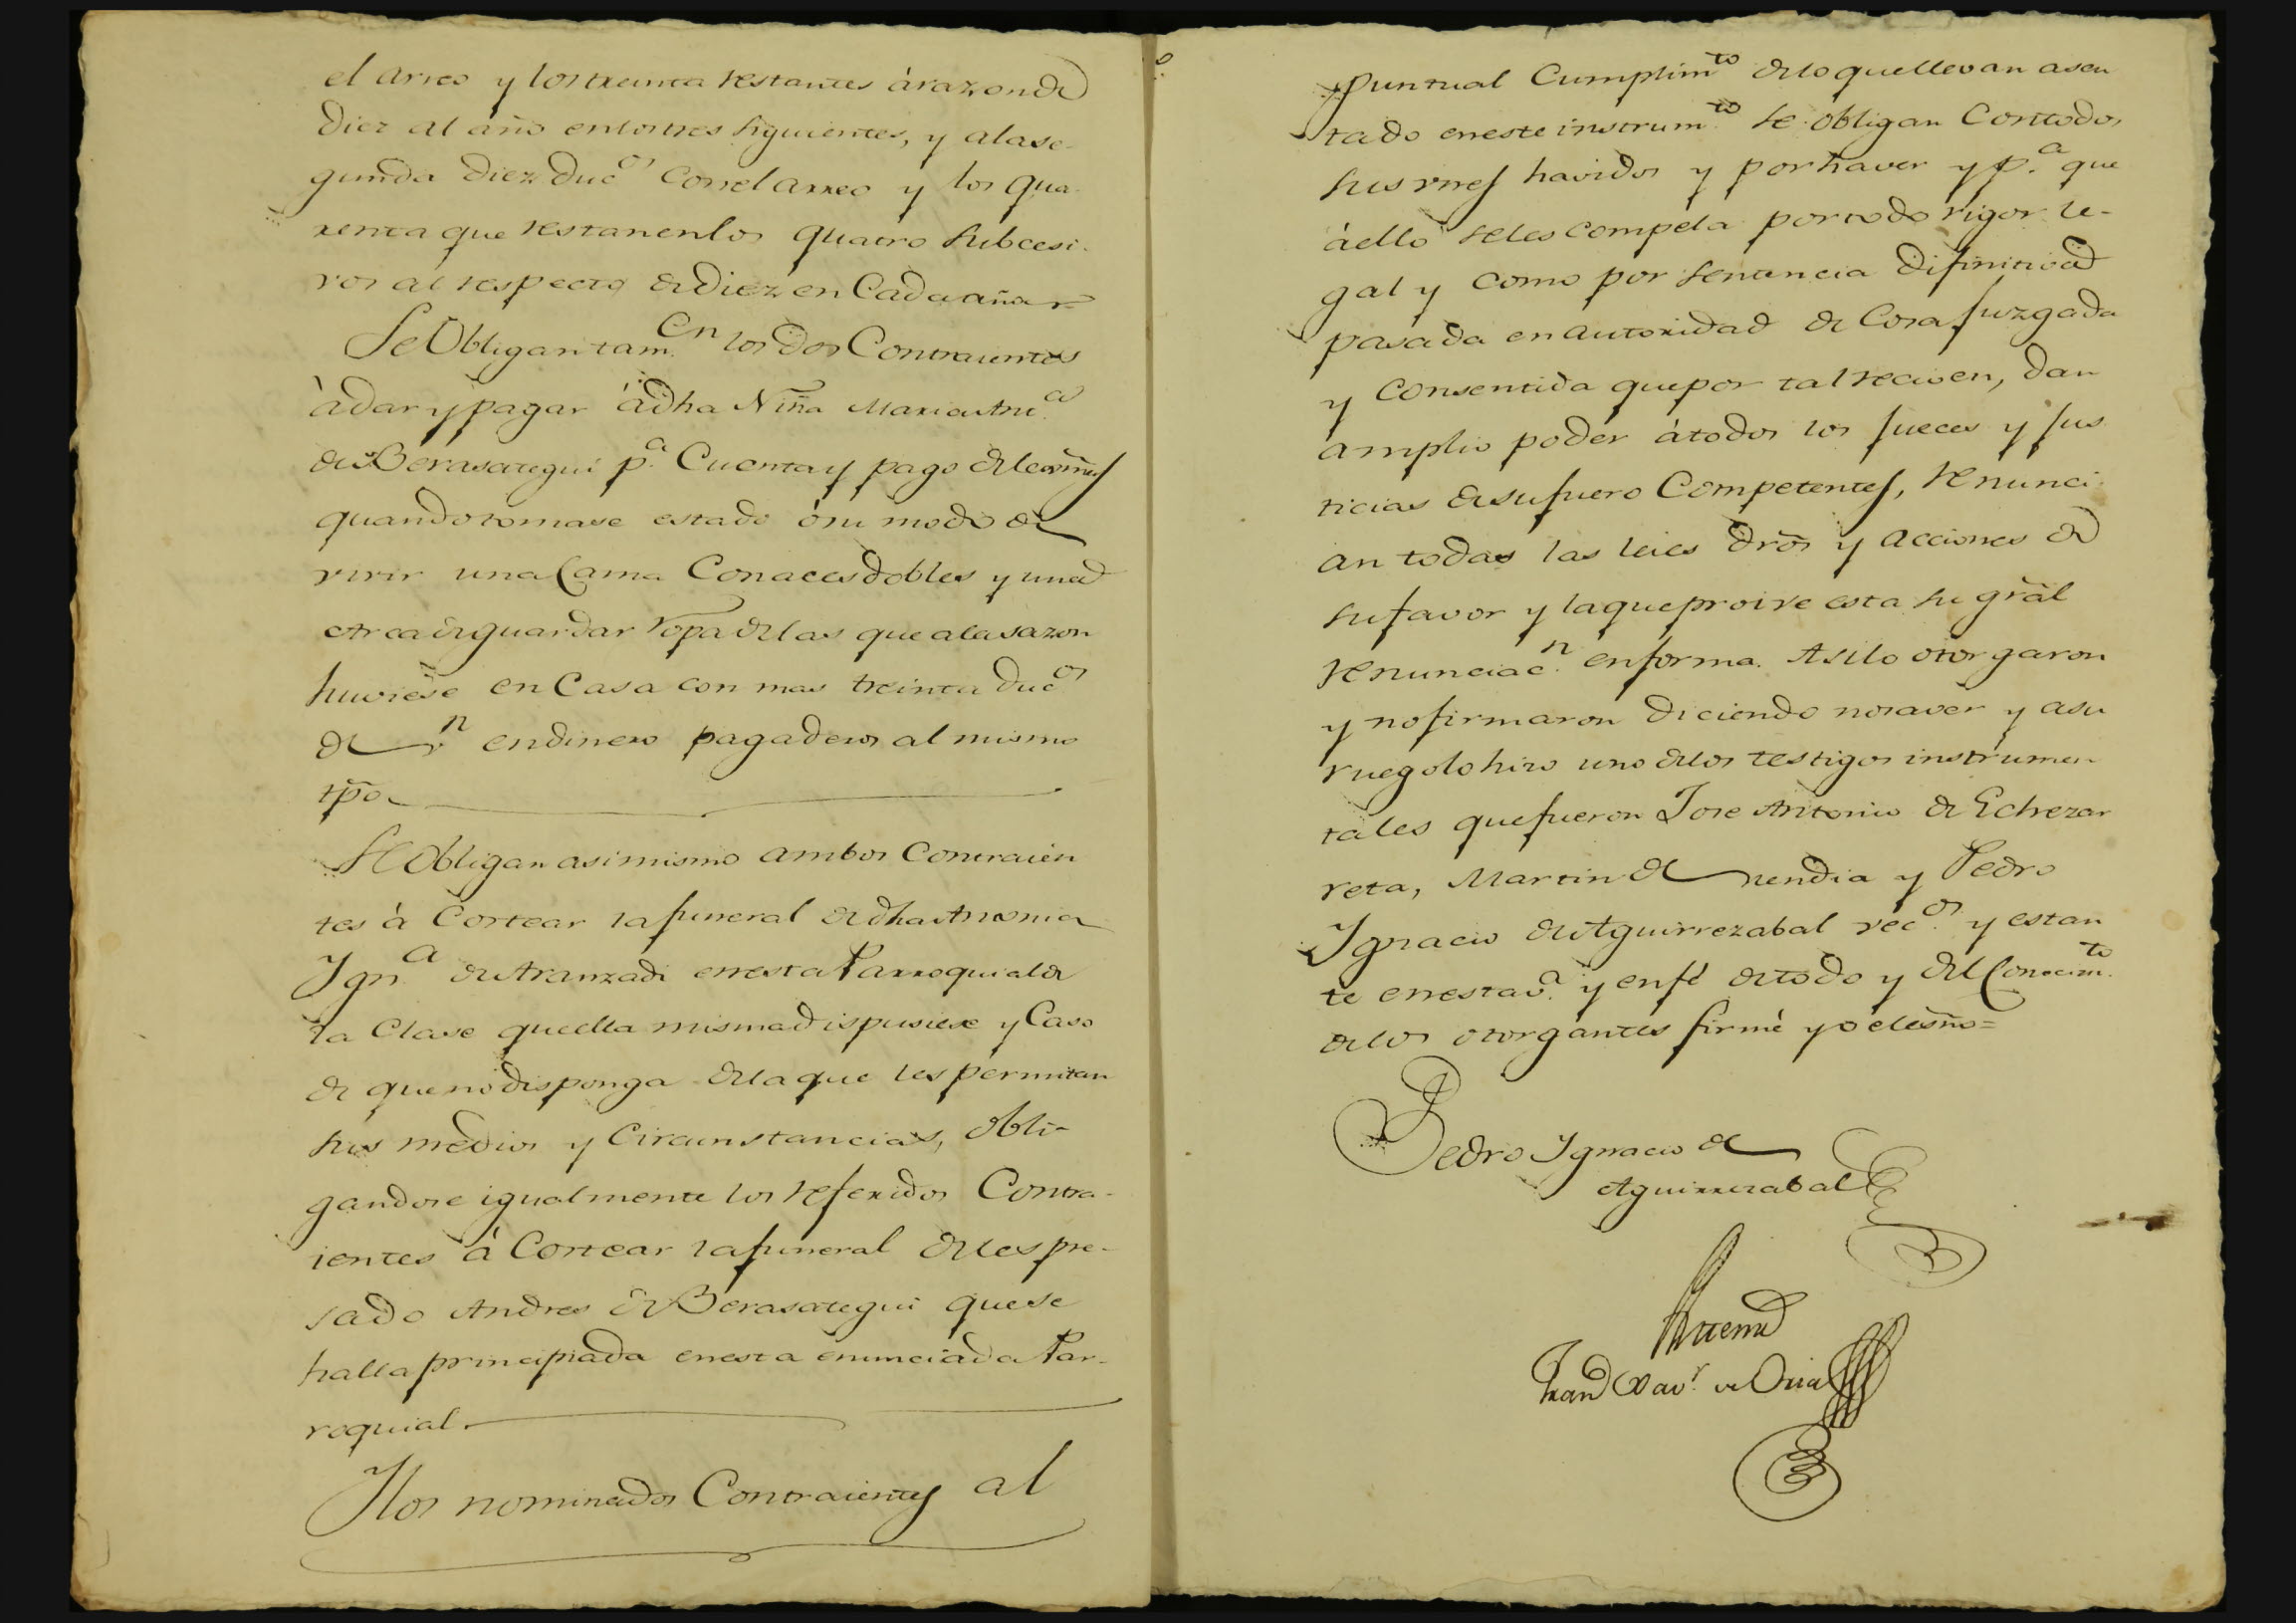 el arreo y los treinta restantes à razon de
diez al año en los tres siguientes, y a la se-
gunda diez duc.os con el arreo y los qua-
renta que restan en los quatro subcesi-
vos al respecto de diez en cada año
Se obligan tam.en los dos Contraientes
à dar y pagar à dha Niña Maria Ant.a
de Berasategui p.a Cuenta y pago de
quando tomase estado ó su modo de
vivir una Cama Con aces dobles y una
Arca de guardar ropa de las que a la sazon
huviese en Casa con mas treinta duc.os
de v.n en dinero pagaderos al mismo
tpo.
Se obligan asimismo ambos Contraien
tes à Costear la funeral de dha Antonia
Ygn.a de Aranzadi en esta Parroquial de
la Clase que ella misma dispusiese y Caso
de que no disponga de la que les permitan
sus medios y Circunstancias, obli-
gandose igualmente los referidos Contra-
ientes à Costear la funeral del espre-
sado Andres de Berasategui que se
halla principiada en esta enunciada Par-
roquial.
Y los nominados Contraientes al
puntual Cumplim.to de lo que llevan asen
tado en este instrum.to se obligan Con todos
sus vnes havidos y por haver y p.a que
à ello se les compela por todo rigor le-
gal y como por sentencia difinitiva
pasada en autoridad de Cosa juzgada
y Consentida que por tal reciven, dan
amplio poder à todos los jueces y jus
ticias de su fuero Competentes, renunci
an todas las leies dros y acciones de
su favor y la que proive esta su gral
renunciac.n en forma. Asi lo otorgaron
y no firmaron diciendo no saver y a su
ruego lo hizo uno de los testigos instrumen
tales que fueron Jose Antonio de Echezar
reta, Martin de nendia y Pedro
Ygnacio de Aguirrezabal vec.os y estan
te en esta v.a y en fé de todo y del Conocim.to
de los otorgantes firmé yo el esno=
Pedro Ygnacio de
Aguirrezabal
Ante mi
Fran.co Xav.r de Oria